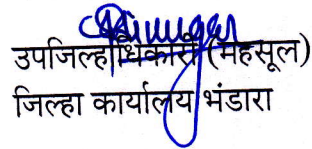 उपजिल्हाधिकारी (महसूल)
जिल्हा कार्यालय भंडारा